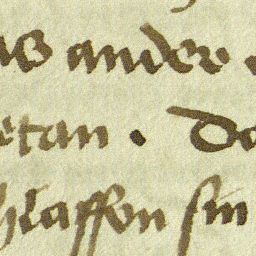 as ander
etan . Do
hlaffen sin